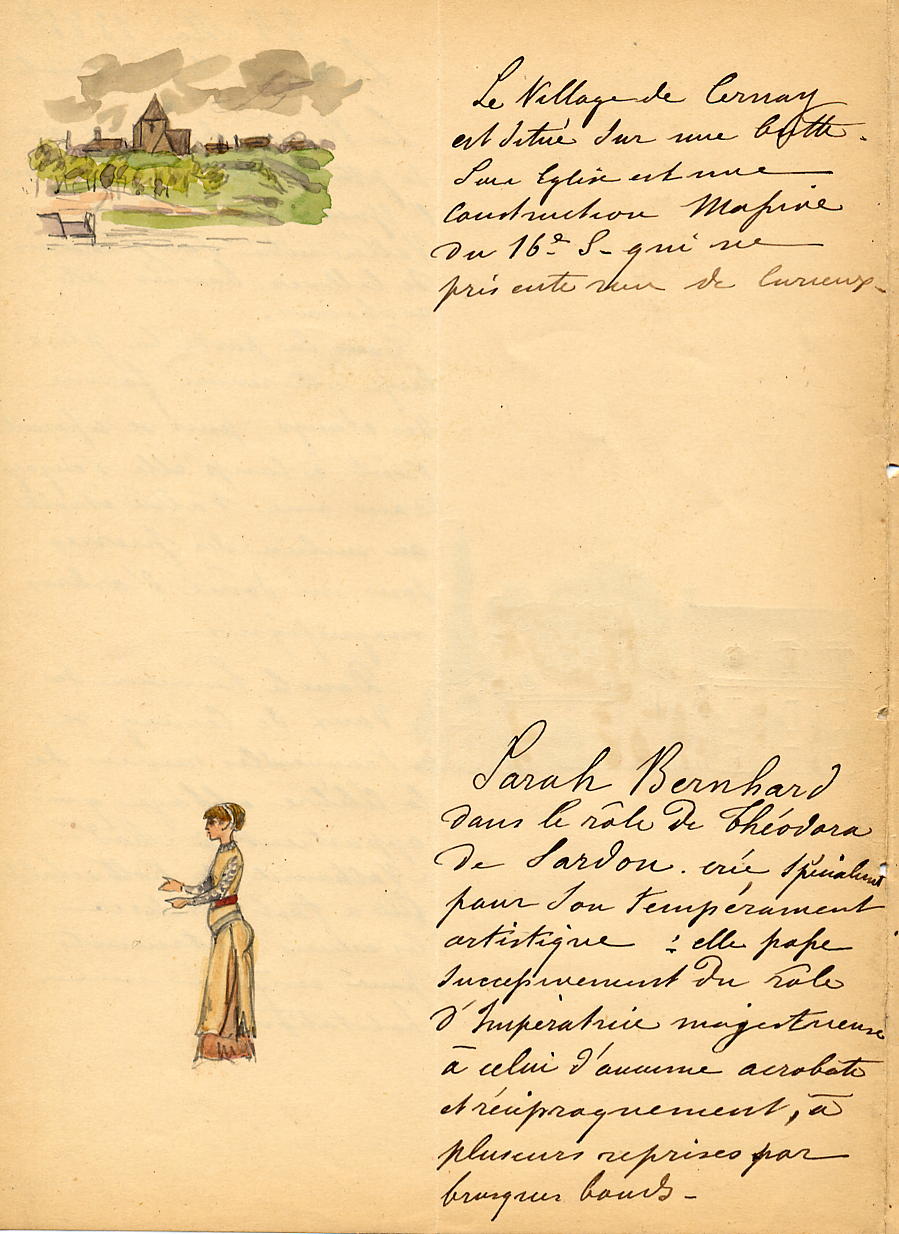 Le Village de Cernay
est situé sur une butte.
Son Eglise est une
construction Massive
du 16e S- qui ne
présente rien de Curieux-
Sarah Bernhard
dans le rôle de Théodora
de Sardou. crée spécialemt
pour son tempérament
artistique : elle passe
successivement du rôle
d'Impératrice majestueuse
à celui d'ancienne acrobate
et réciproquement, à
plusieurs reprises par
brusques bonds-